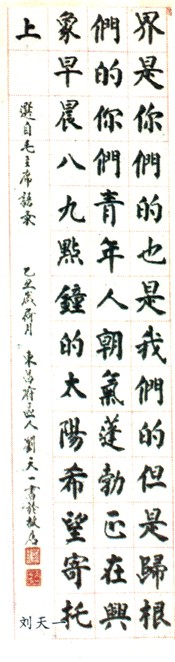 界是你們的也是我們的但是歸根
們的你們青年人朝氣蓬勃正在興
象早晨八九點鐘的太陽希望寄托
上
選自毛主席語录 乙丑歲荷月 東昌府邑人劉天一書於故居
刘天一